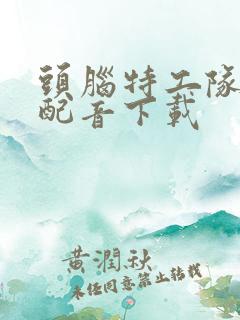 頭腦特工隊
配音下載
黃潤秋
未任同意禁止转载